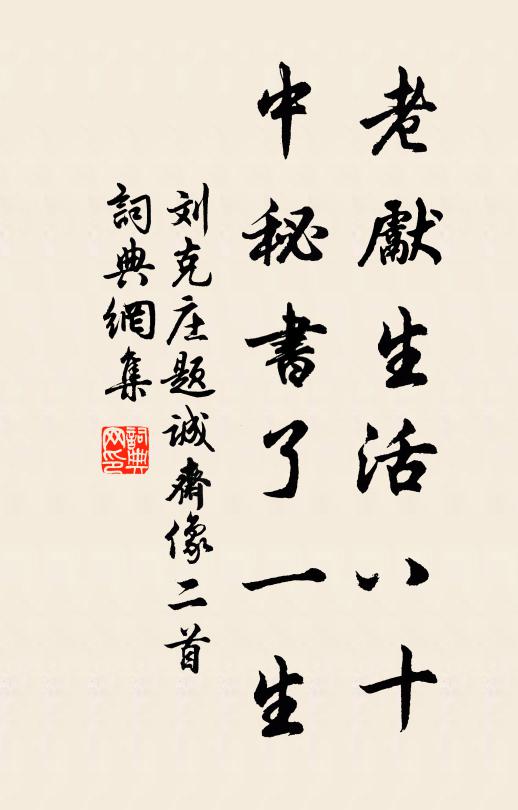 老獻生活八十
中秘書了一生
刘克庄题誠齋像二首
詞典網集
詞典網印